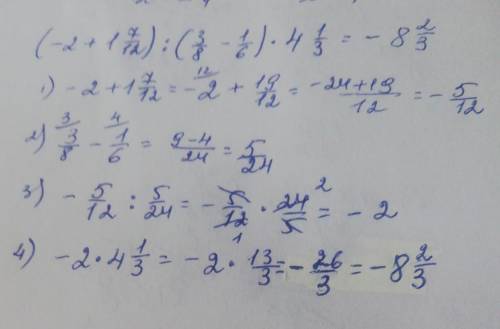 (-2 + 1 7/12) : (3/8 - 1/6) · 4 1/3 = - 8 2/3
1) -2 + 1 7/12 = - ¹²2 + 19/12 = -24+19/12 = - 5/12
2) ³3/8 - ⁴1/6 = 9-4/24 = 5/24
3) - 5/12 : 5/24 = - 5/12 ₁ · 24/5 ² = - 2
4) -2 · 4 1/3 = -2 · 13/3 = - 26/3 = -8 2/3